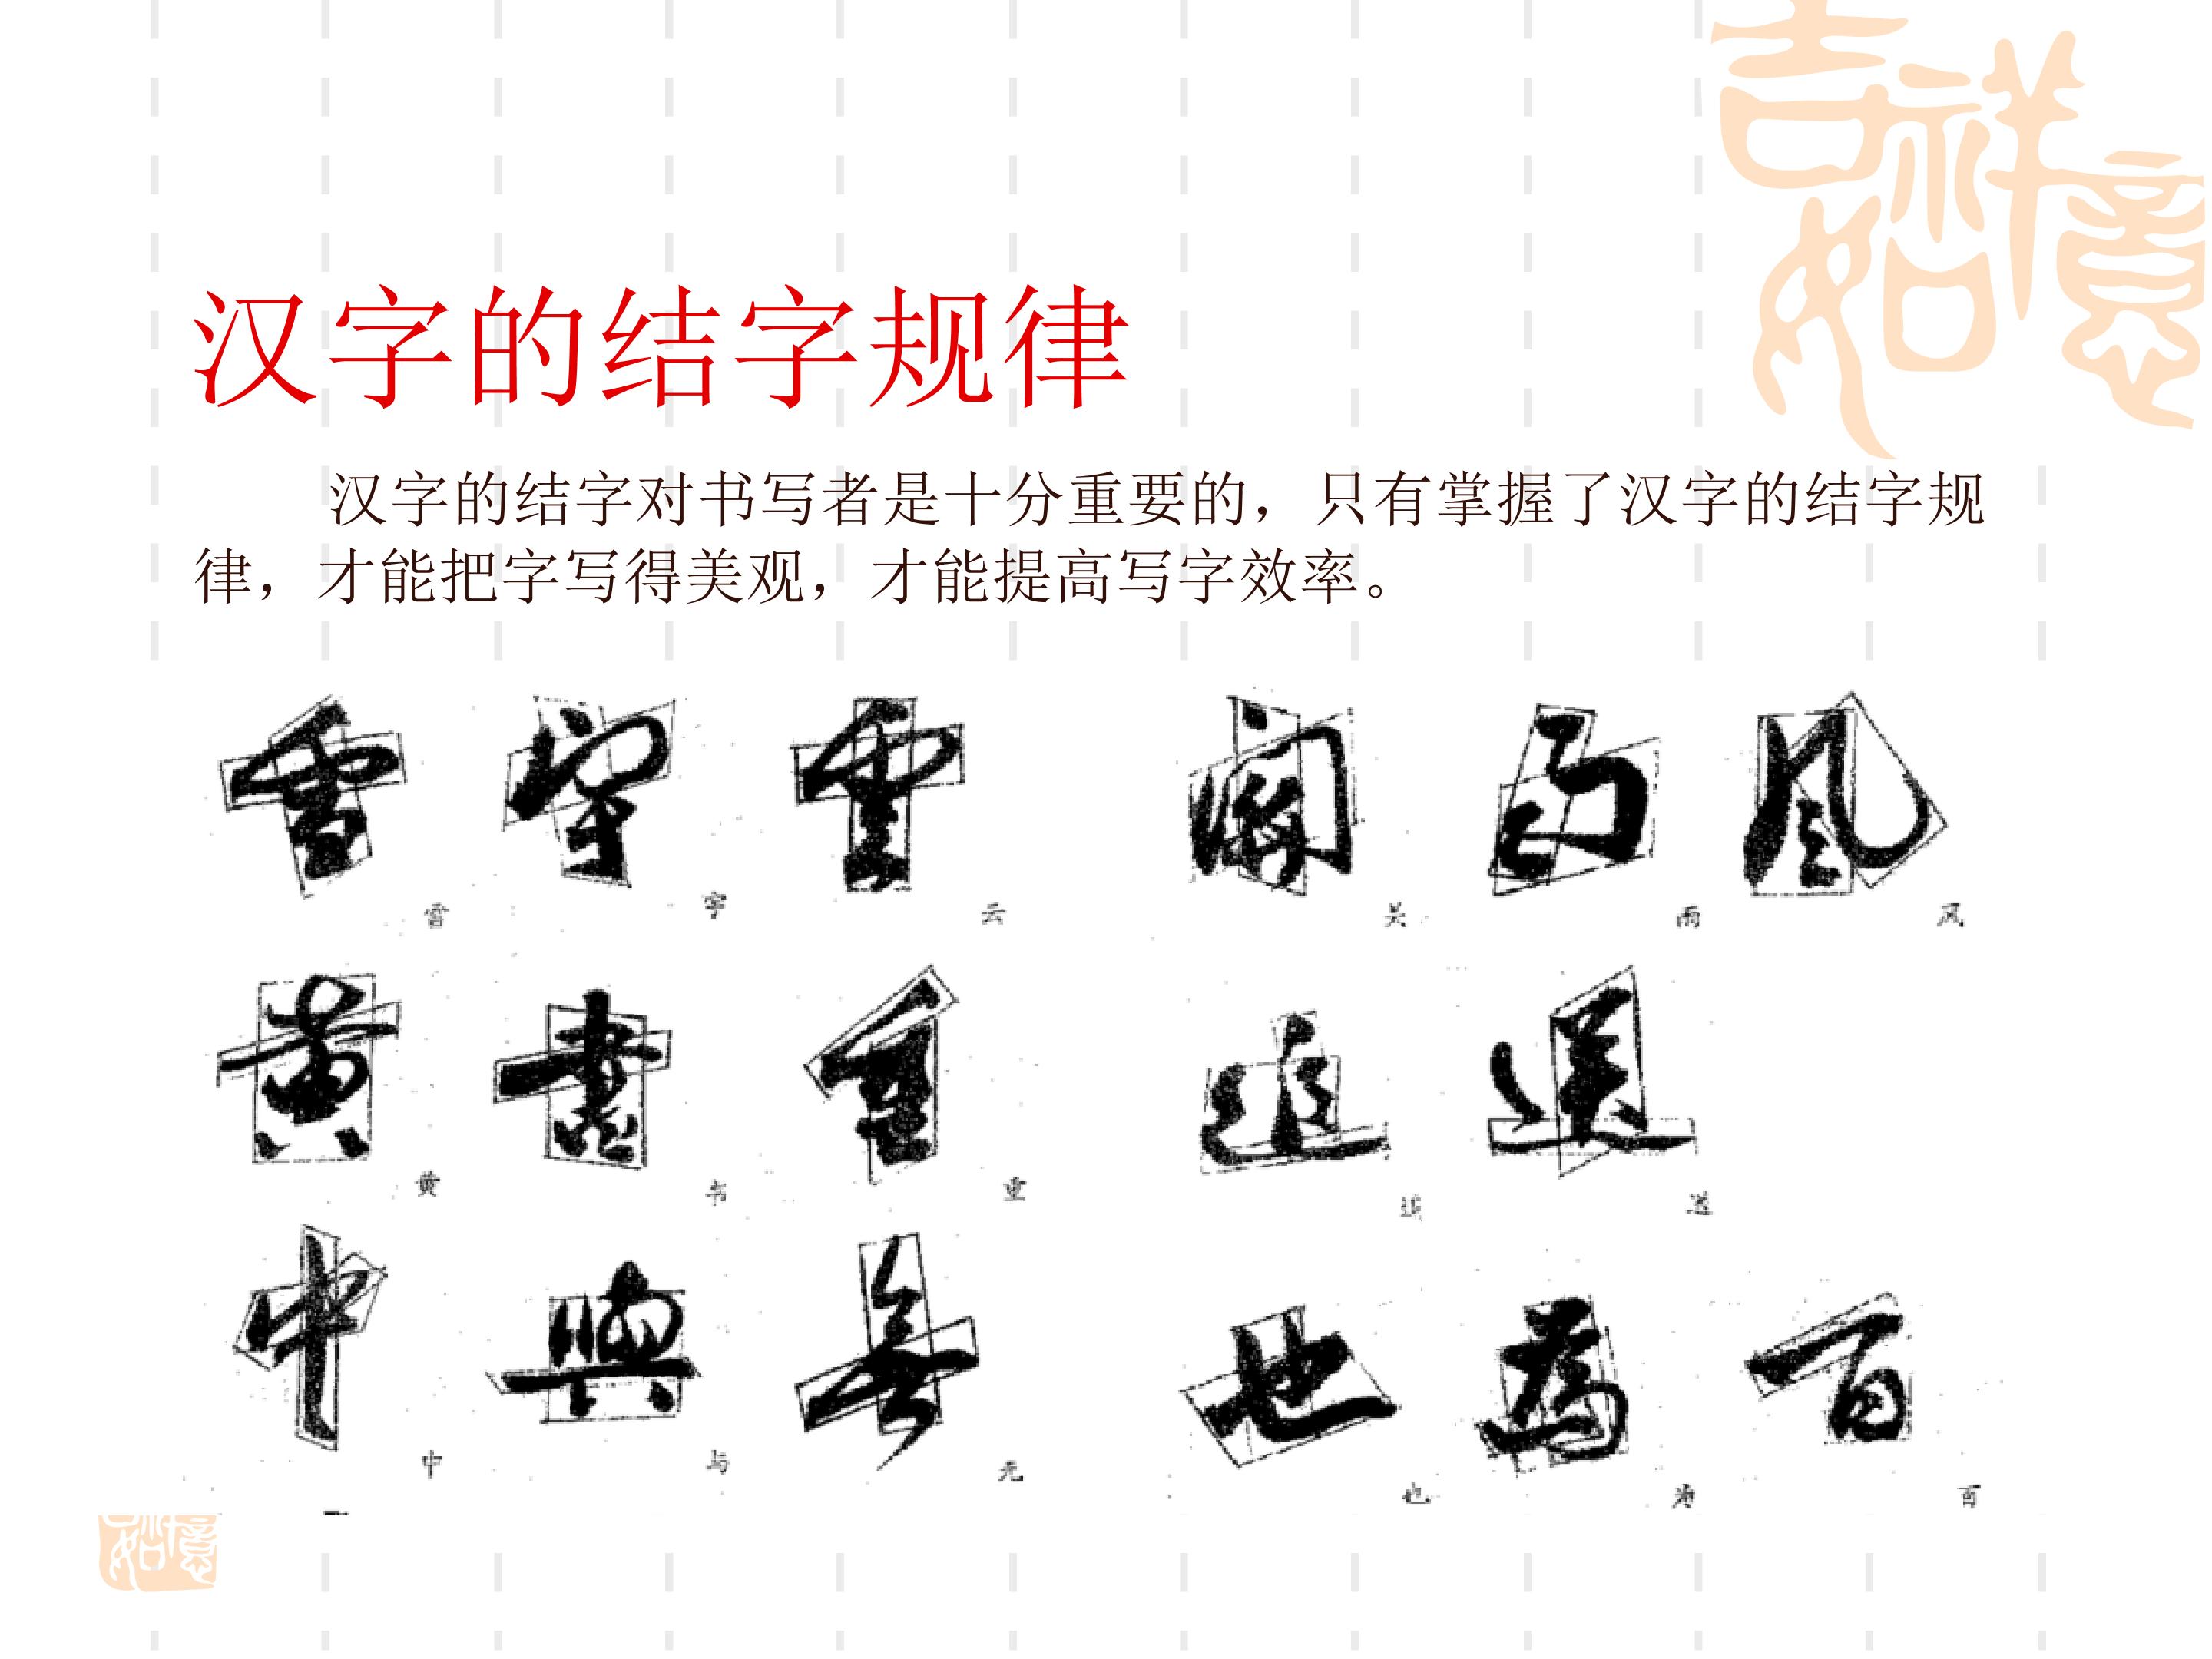 吉祥如意
汉字的结字规律
汉字的结字对书写者是十分重要的，只有掌握了汉字的结字规
律，才能把字写得美观，才能提高写字效率。
雪 宇 云 关 雨 风
黄 书 重 追 送
中 与 无 也 为 百